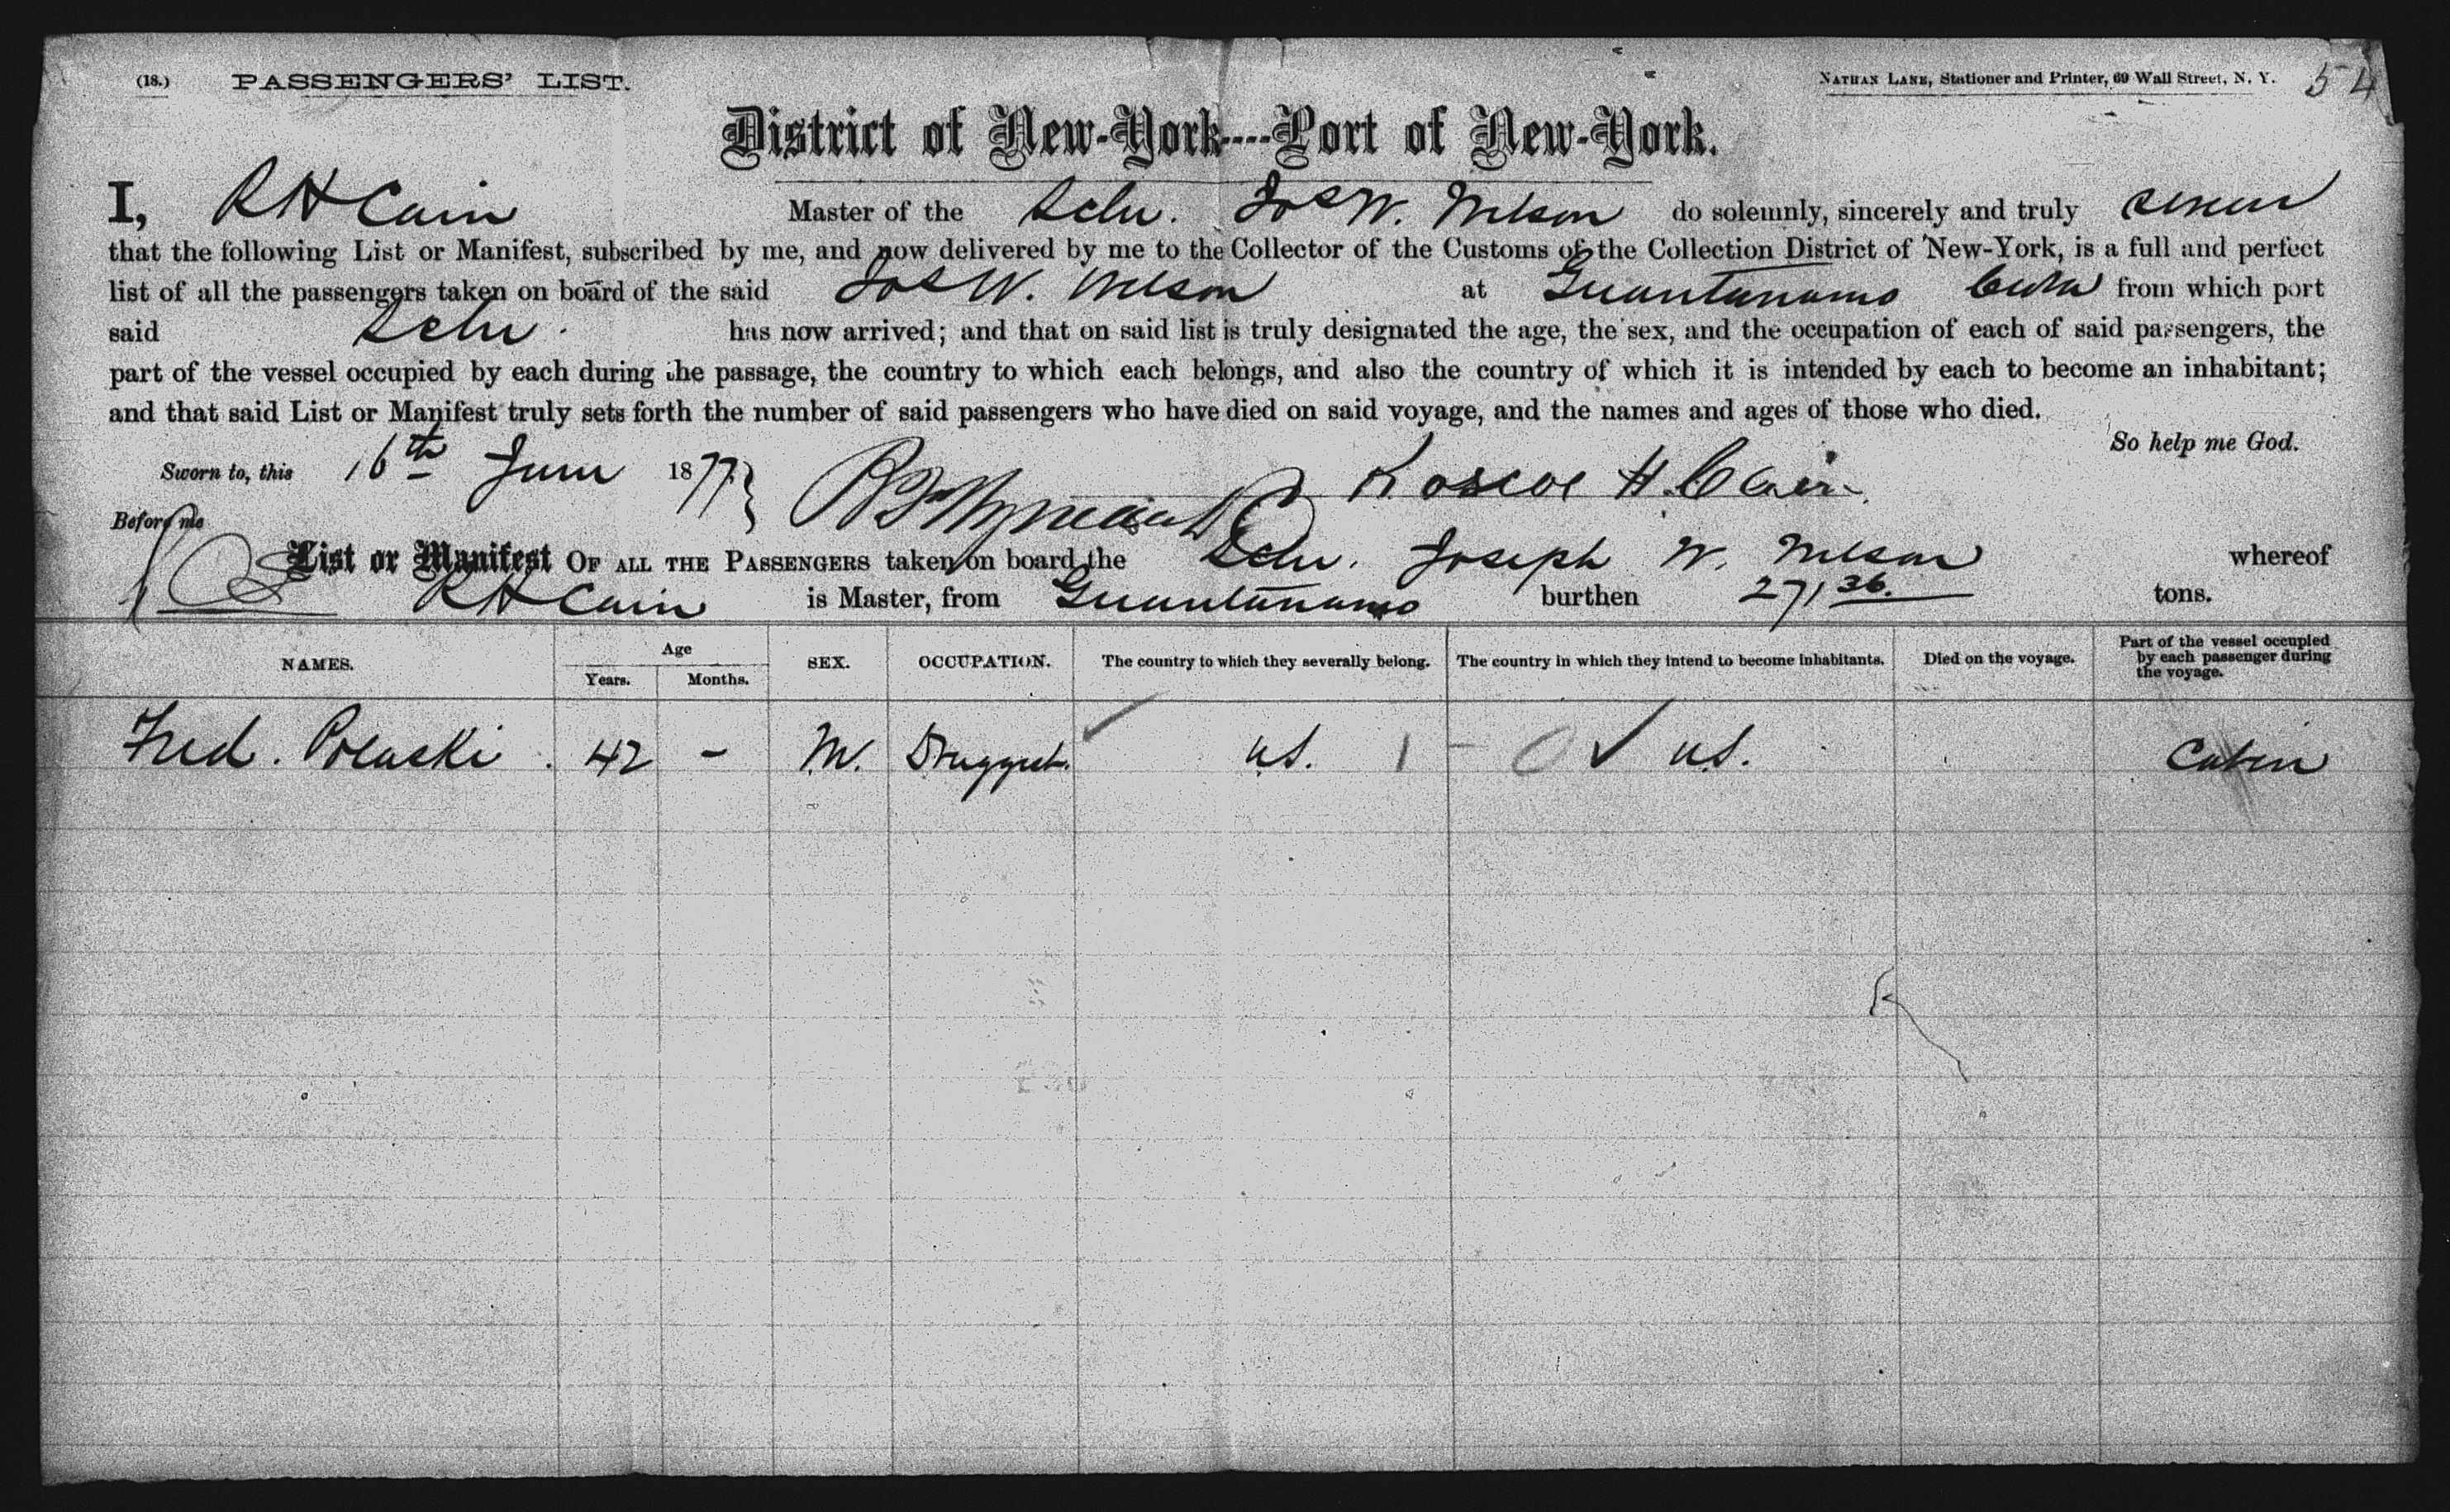 (18.) PASSENGERS' LIST.
NATHAN LANE, Stationer and Printer, 69 Wall Street, N. Y.
54
District of New-York----Port of New-York.
I, R H Cain Master of the Schr. Jos W. Wilson do solemnly, sincerely and truly swear
that the following List or Manifest, subscribed by me, and now delivered by me to the Collector of the Customs of the Collection District of New-York, is a full and perfect
list of all the passengers taken on board of the said Jos W. Wilson at Guantanamo Cuba from which port
said Schr. has now arrived; and that on said list is truly designated the age, the sex, and the occupation of each of said passengers, the
part of the vessel occupied by each during the passage, the country to which each belongs, and also the country of which it is intended by each to become an inhabitant;
and that said List or Manifest truly sets forth the number of said passengers who have died on said voyage, and the names and ages of those who died.
So help me God.
Sworn to, this 16th June 1877 Roscoe H. Cain
Before me
List or Manifest OF ALL THE PASSENGERS taken on board the Schr. Joseph W. Wilson whereof
R H Cain is Master, from Guantanamo burthen 271 36 tons.
NAMES. Age Years. Months. SEX. OCCUPATION. The country to which they severally belong. The country in which they intend to become inhabitants. Died on the voyage. Part of the vessel occupied by each passenger during the voyage.
Fred. Poluski. 42 - M. Druggist. U.S. 1 - 0 ✓ U.S. Cabin